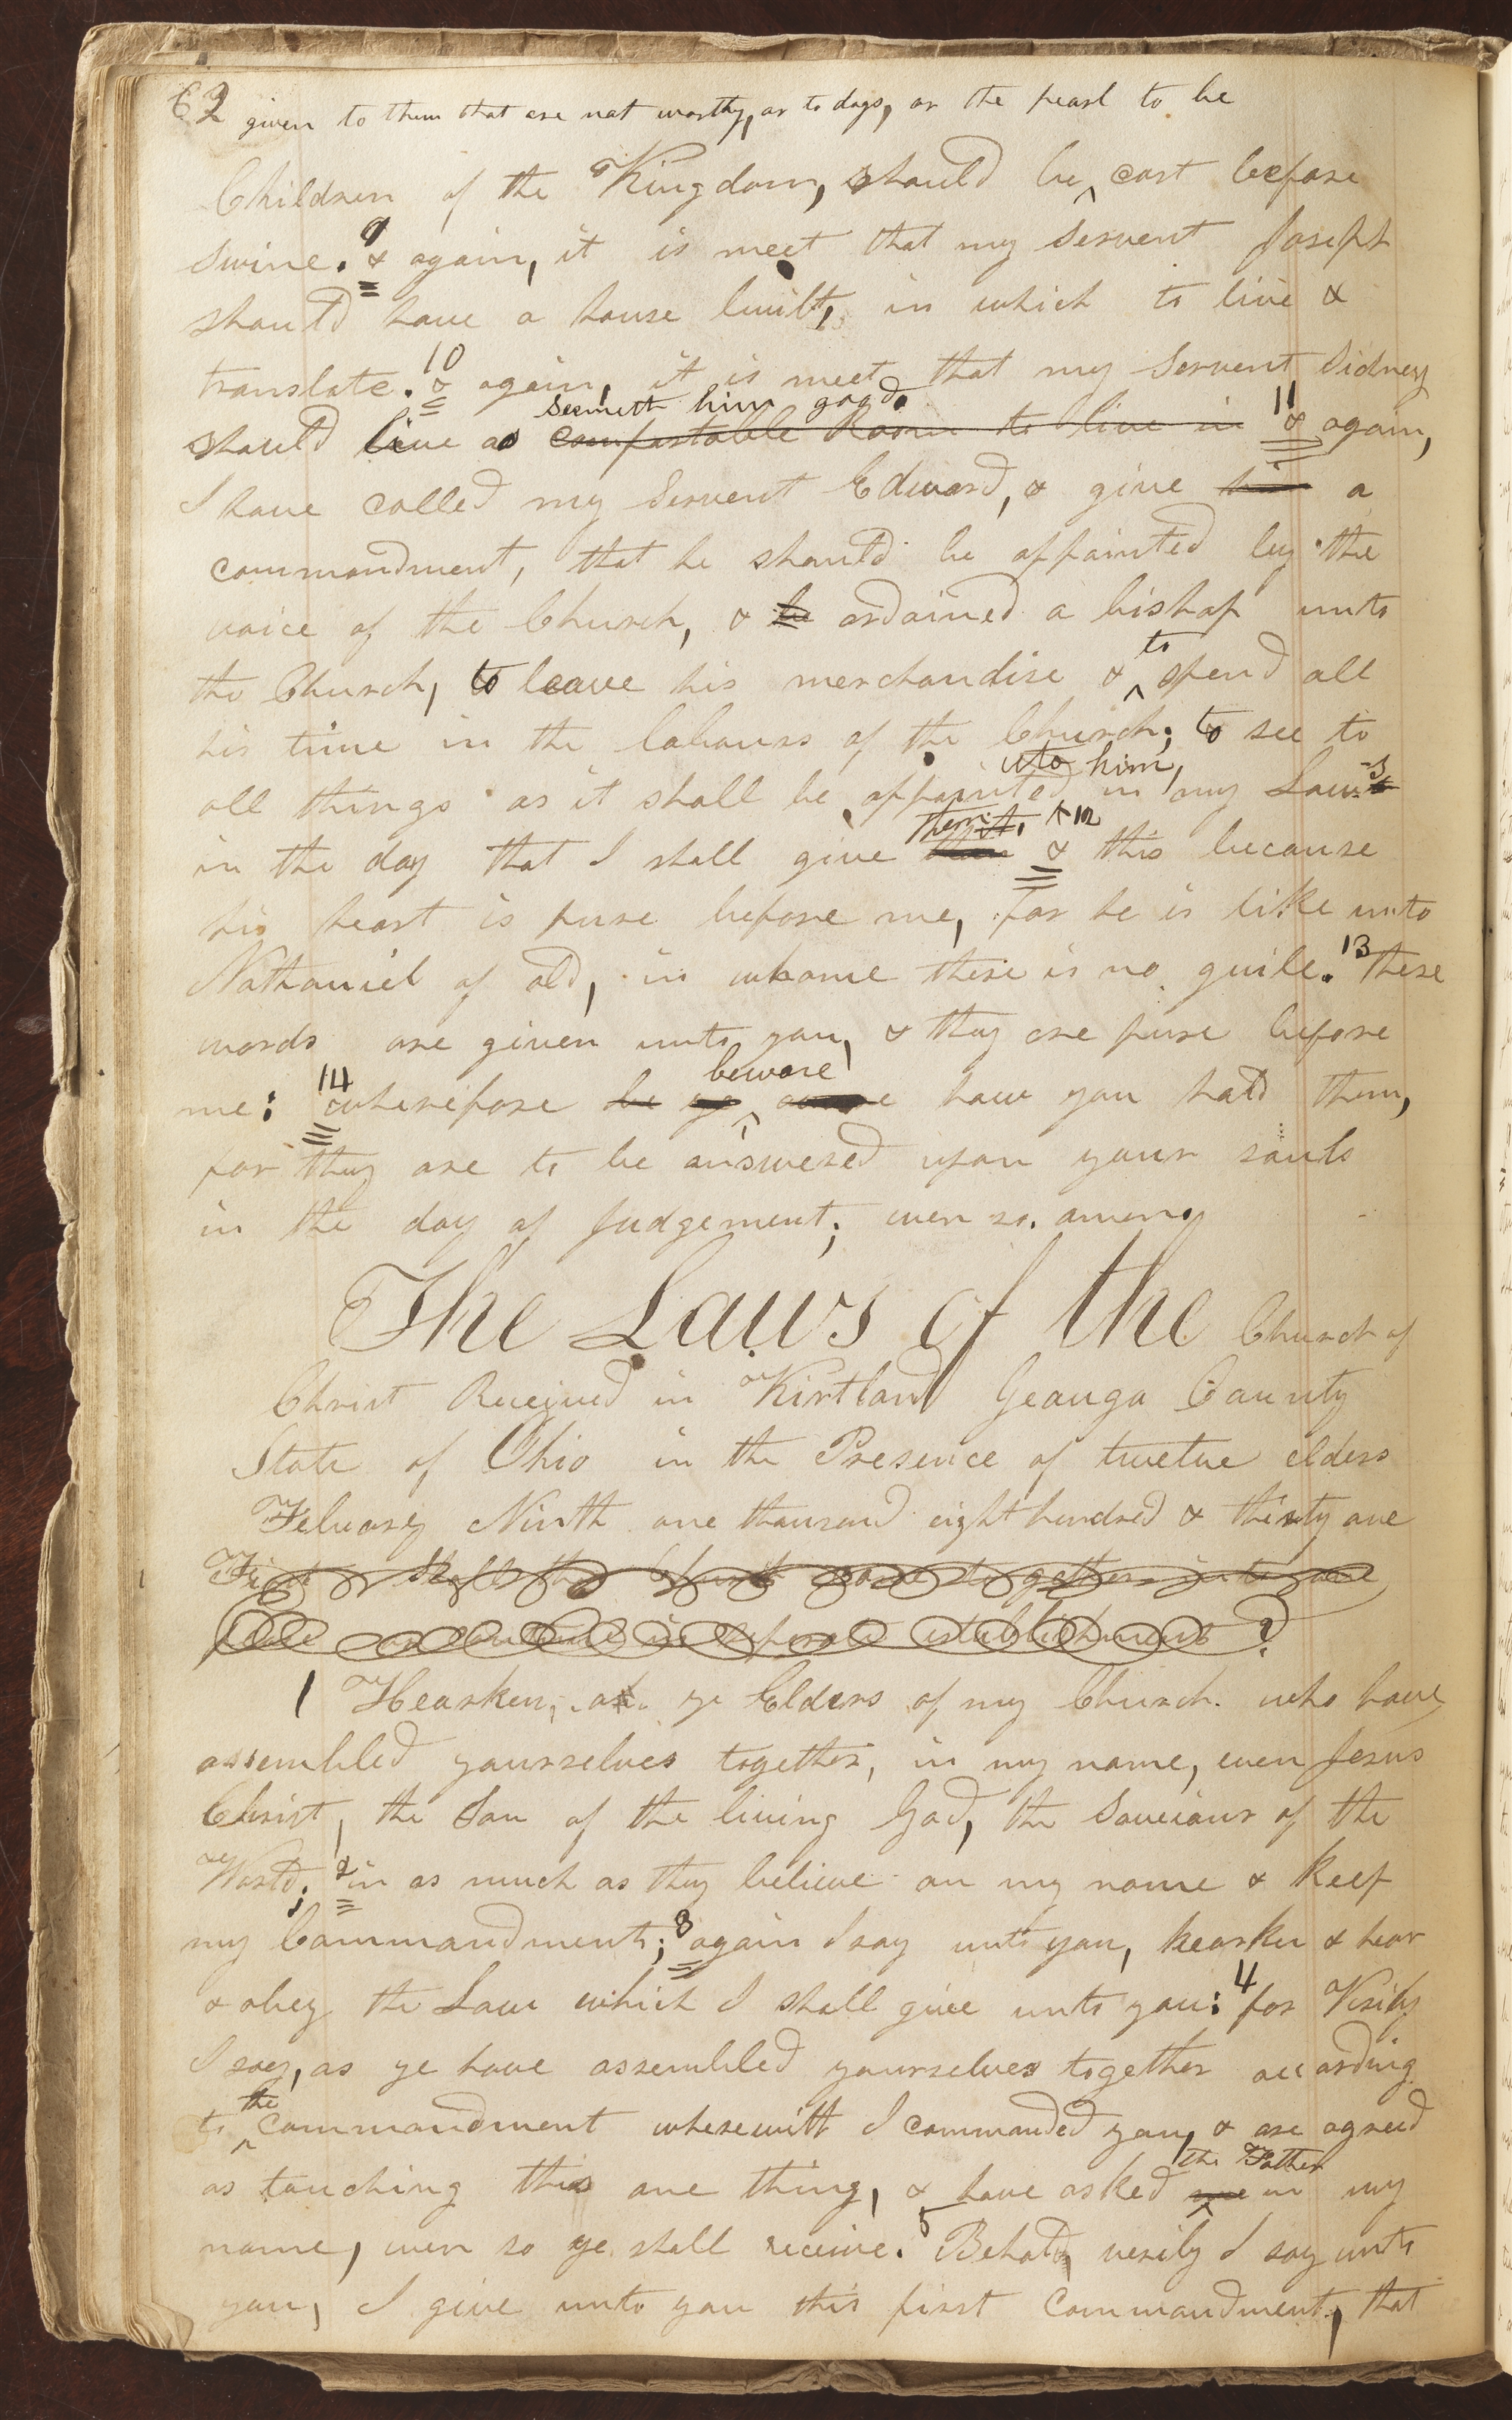 62 given to them that are not worthy, or to dogs, or the pearl to be
Children of the Kingdom, should be cast before
swine. 9 & again, it is meet that my Servent Joseph
should have a house built, in which to live &
translate. 10 & again, it is meet that my Servent Sidney
seemeth him good.
should live as comfortable Room to live in 11 & again,
I have called my Servent Edward, & give him a
commandment, that he should be appointed by the
voice of the Church, & be ordained a bishop unto
to
the Church, to leave his merchandise & spend all
his time in the labours of the Church; to see to
unto him,
all things as it shall be appointed in my Laws
them 12
in the day that I shall give & this because
his heart is pure before me, for he is like unto
Nathaniel of old, in whome there is no guile. 13 these
words are given unto you, & they are pure before
beware
me: 14 wherefore be ye how you hold them,
for they are to be answered upon your souls
in the day of Judgement; even so. amen.
The Laws of the Church of
Christ Received in Kirtland Geauga County
State of Ohio in the Presence of twelve elders
Febuary Ninth one thousand eight hundred & thirty one
First Shall the Church come together into one
place or continue in seperate establishments ?
1 Hearken, oh ye Elders of my Church. who have
assembled yourselves together, in my name, even Jesus
Christ, the Son of the living God, the Saveiour of the
World; 2 in as much as they believe on my name & keep
my Commandments; 3 again I say unto you, hearken & hear
& obey the Law which I shall give unto you: 4 for Verily
I say, as ye have assembled yourselves together according
the
to commandment wherewith I commanded you, & are agreed
the Father
as touching this one thing, & have asked me in my
name, even so ye shall receive. 5 Behold, verily I say unto
you, I give unto you this first commandment, that